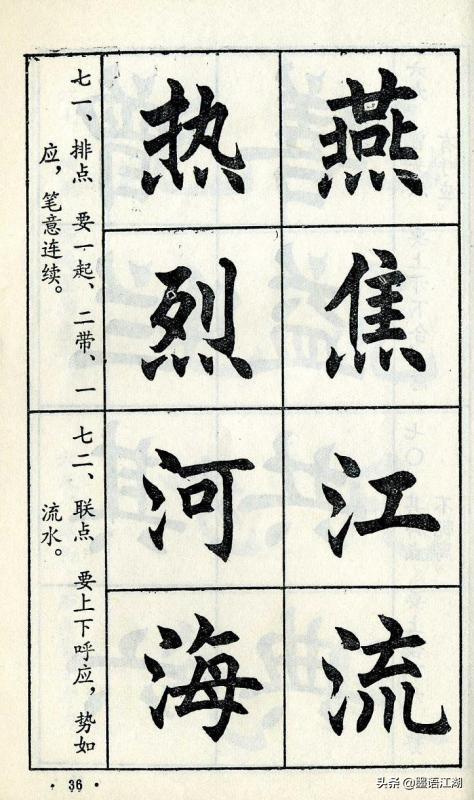 燕焦
热烈
七一、排点 要一起、二带、一
应，笔意连续。
江流
河海
七二、联点 要上下呼应，势如
流水。
· 36 ·
头条 @墨语江湖